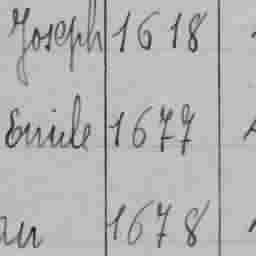 Joseph 1618
Emile 1677
an 1678